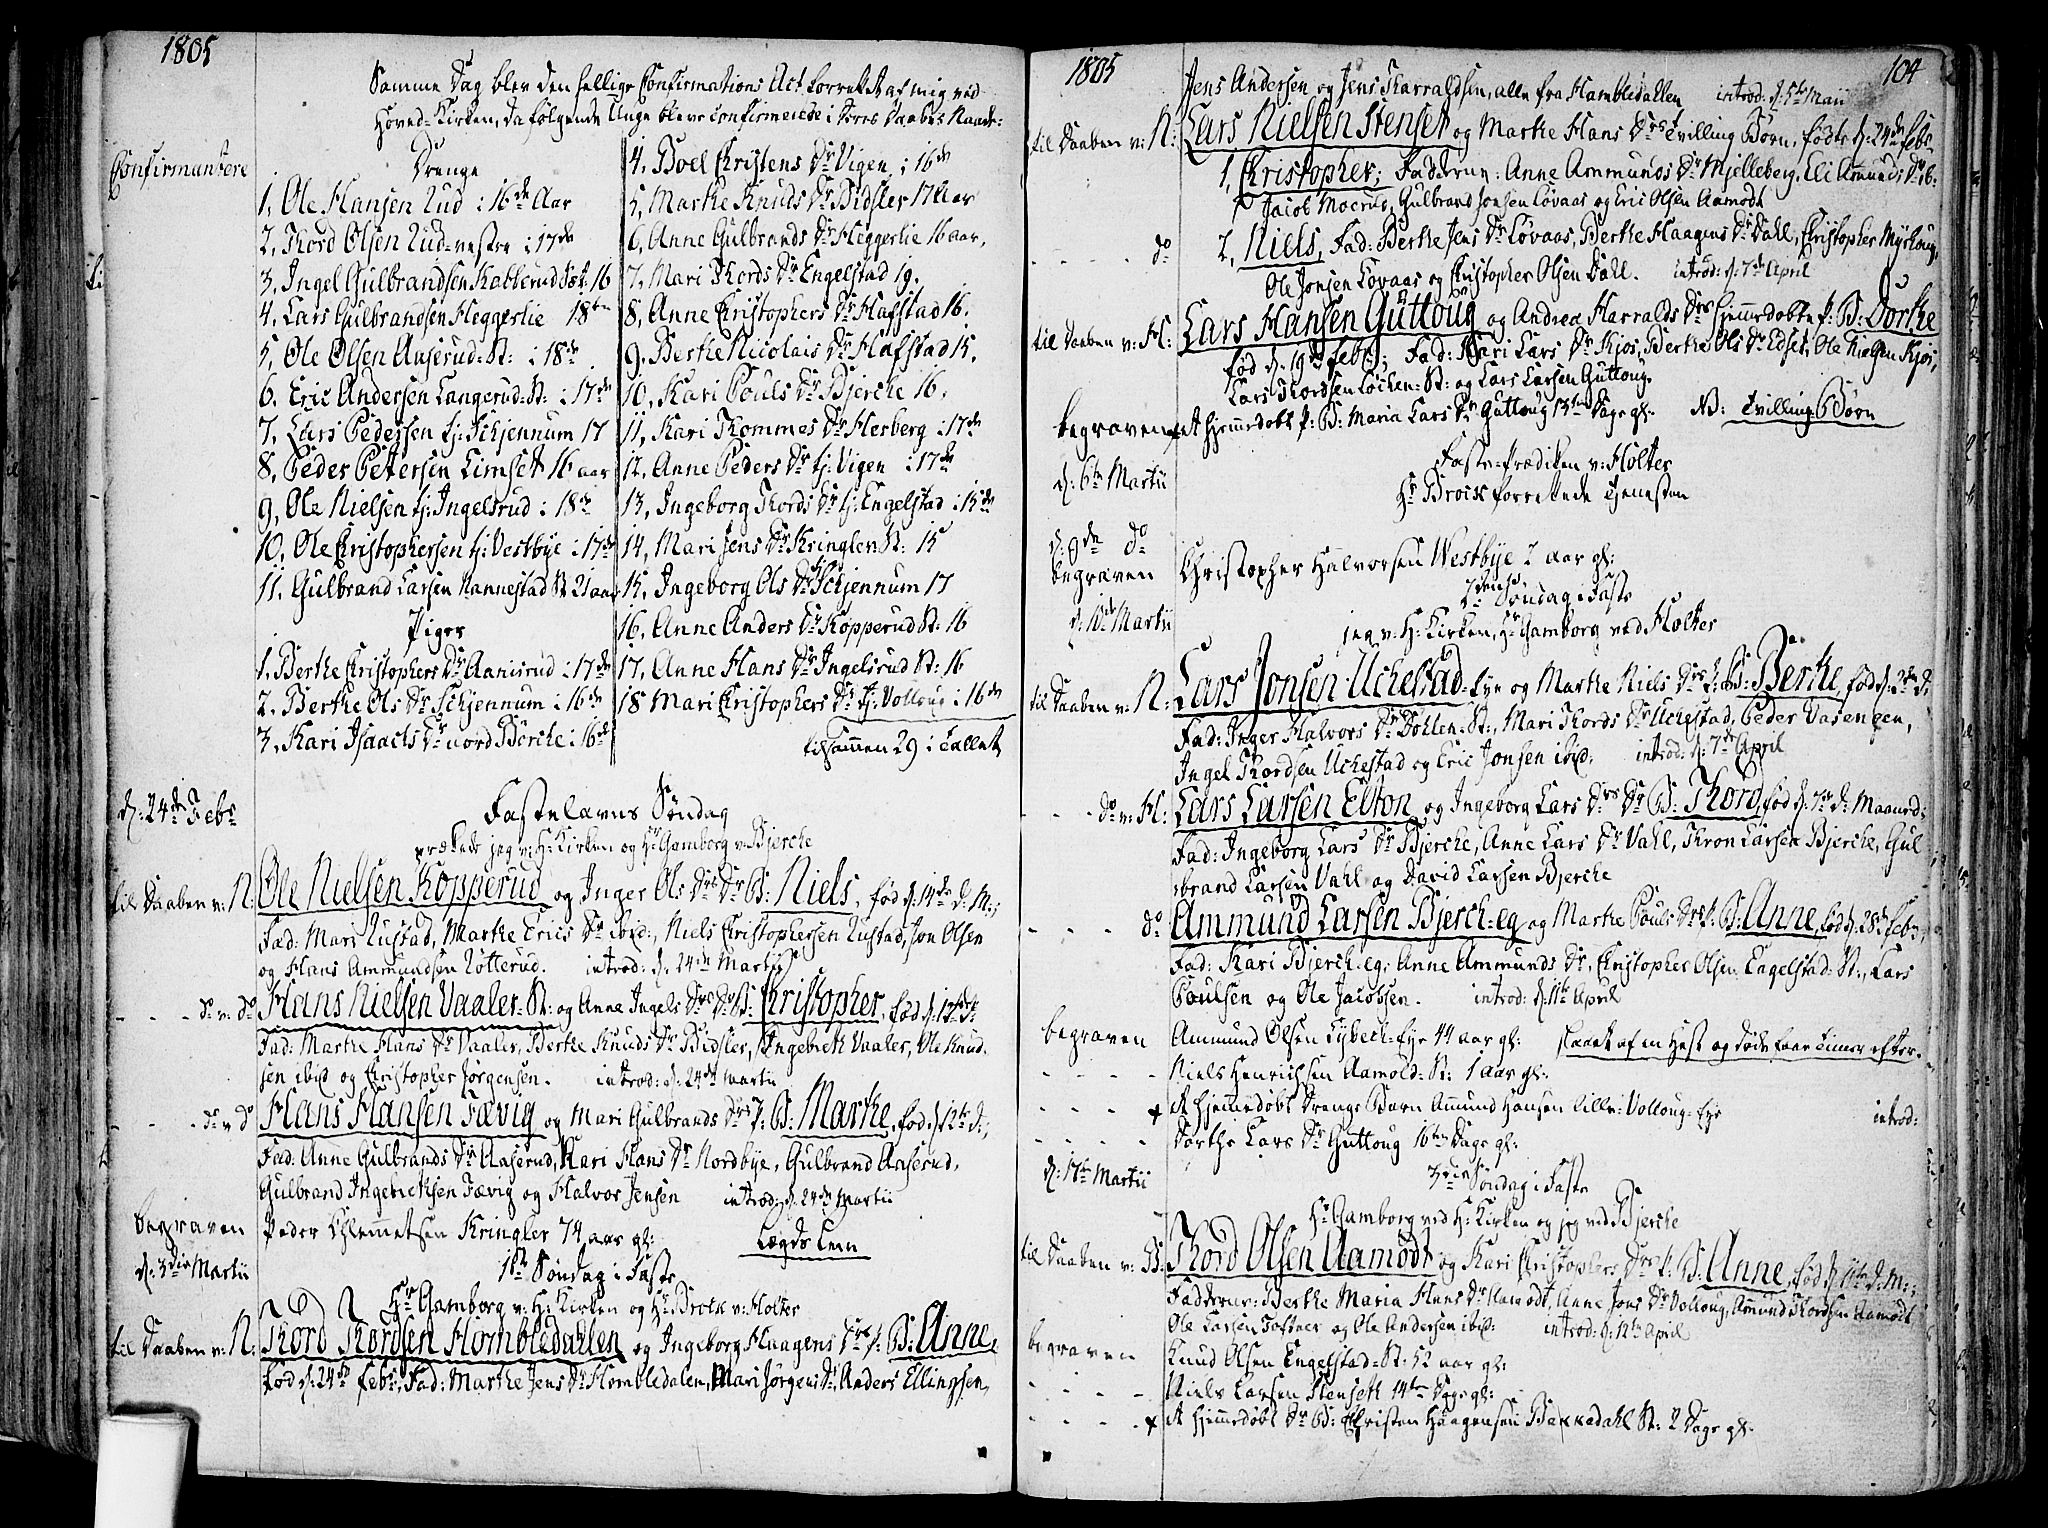 1805
Samme Dag blev den sellige Confirmations Act forrettet af mig ved
Hoved-Kirken, da følgende Unge bleve confirmerede i deres Daabes Naade:
Confirmantere
Drenge
1, Ole Hansen Rud : 16de Aar
2, Thord Olsen Rud-vestre : 17de
3, Ingel Gulbrandsen Kalkerud St: 16
4. Lars Gulbrandsen Heggerlie 18ten
5, Ole Olsen Aaserud: St: : 18de
6. Eric Andersen Langerud-St: : 17de
7. Lars Pedersen tj: Schjennum 17
8. Peder Petersen Limset 16 aar
9, Ole Nielsen tj: Ingelsrud : 18de
10, Ole Christophersen tj: Vestbye : 17de
11. Gulbrand Larsen Nannestad St: 21 aar
Piger
1. Berthe Christophers Dr Aanisrud : 17de
2. Berthe Ols Dr Schjennum : 16de
3. Kari Isaachs Dr nord Bierche : 16de
4. Boel Christens Dr Vigen : 16de
5, Marthe Knuds Dr Bidsler 17 Aar
6, Anne Gulbrands Dr Heggerlie 16 aar,
7. Mari Thords Dr Engelstad 19.
8, Anne Christophers Dr Hafstad 16.
9. Berthe Nicolais Dr Hafstad 15.
10, Kari Pouls Dr Bjerche 16.
11, Kari Thommes Dr Herberg : 17de
12, Anne Peders Dr tj: Vigen : 17de
13, Ingeborg Thords Dr tj: Engelstad : 15de
14, Mari Jens Dr Kringlen St: 15
15, Ingeborg Ols Dr Schjennum 17
16. Anne Anders Dr Kopperud St: 16
17. Anne Hans Dr Ingelsrud St: 16
18 Mari Christophers Dr tj: Volloug : 16de
tilsammen 29 i Tallet
d: 24de Febr
Fastelavns Søndag
prækede jeg v: H: Kirken og Hr Gamborg v: Bjerche
til Daaben v: N: Ole Nielsen Kopperud og Inger Ols Drs Dr B: Niels, fød d: 14de d: M:;
Fad: Mari Rustad, Marthe Erics Dr ibid:, Niels Christophersen Rustad, Jon Olsen
og Hans Ammundsen Røtterud. introd: d: 24de Martii
- - - do v: do Hans Nielsen Vaaler-St: og Anne Ingels Drs B: Christopher, fød d: 12de
Fad: Marthe Hans Dr Vaaler, Berthe Knuds Dr Bidsler, Ingebreth Vaaler, Ole Knud-
sen ibid og Christopher Jørgensen. introd: d: 24de Martii
- - - do v: do Hans Hansen Fævig og Mari Gulbrands Drs P: B: Marthe, fød d: 12te d:;
Fad. Anne Gulbrands Dr Aaserud, Kari Hans Dr Nordbye, Gulbrand Aaserud,
Gulbrand Ingebrethsen Fævig og Halvor Jensen introd: d: 24de Martii
begraven Peder Clemmetsen Kringler 74 aar gl: Lægds Lem
d: 3die Martii
1ste Søndag i Faste
Hr Gamborg v: H: Kirken og Hr Brock v: Holter
til Daaben v: N: Thord Thordsen Hombledahlen og Ingeborg Haagens Drs P: B: Anne,
fød d: 24de Febr, Fad: Marthe Jens Dr Hombledalen, Mari Jørgens Dr, Anders Ellingsen,
1805 104
Jens Andersen og Jens Harraldsen, alle fra Hambledallen introd: d: 5te Maii
til Daaben v: N: Lars Nielsen Stenset og Marthe Hans Drs Tvilling Børn, fødte d: 24de Febr,
1, Christopher; Fadderne: Anne Ammunds Dr Mjelleberg, Eli Amunds Dr ib:
Jacob Moerud, Gulbrand Jonsen Løvaas og Eric Olsen Aamodt
- - - do 2, Niels, Fad: Berthe Jens Dr Løvaas, Berthe Haagens Dr Dahl, Christopher Myhoug,
Ole Jonsen Løvaas og Christopher Olsen Dahl. introd: d: 7de April
til Daaben v: H: Lars Hansen Guttoug og Andrea Harralds Drs hjemmedøbte P: B: Dorthe
fød d: 19de Febr; Fad: Kari Lars Dr Kjos, Berthe Ols Dr Edset, Ole Nielsen Kjos,
Lars Thordsen Løchen-St: og Lars Larsen Guttoug.
begraven et hjemmedøbt P: B: Maria Lars Dr Guttoug 13ten Dage gl: NB: Tvilling-Børn
d: 6te Martii
Faste-Prædiken v: Holter
Hr Brock forrettede Tjenesten
d: 9de do
begraven Christopher Halvorsen Westbye 2 aar gl:
d: 10de Martii
2den Søndag i Faste
jeg v: H: Kirken, Hr Gamborg ved Holter
til Daaben v: N: Lars Jonsen Uchestad-Eye og Marthe Niels Drs P: B: Berthe, fød d: 2den d:
Fad: Inger Halvors Dr Dohlen-St:, Mari Thords Dr Uchestad, Peder Vasengen,
Ingel Thordsen Uchestad og Eric Jonsen ibid: introd: d: 7de April
- - - do v: H: Lars Larsen Elton og Ingeborg Lars Drs Dr B: Thord, fød d: 7de d: Maaned;
Fad: Ingeborg Lars Dr Bjerche, Anne Lars Dr Vahl, Thron Larsen Bjerche, Gul-
brand Larsen Vahl og David Larsen Bjerche
- - - do Ammund Larsen Bjerch-eg og Marthe Pouls Drs P: B: Anne, fød d: 28de Febr,
Fad: Kari Bjerch-eg, Anne Ammunds Dr, Christopher Olsen Engelstad-St:, Lars
Poulsen og Ole Jacobsen. introd: d: 11te April
begraven Ammund Olsen Lybech-Eye 44 aar gl: slaaet af en Hest og døde faae Timer efter.
- - - - Niels Henrichsen Aamold-St: 1 aar gl:
- - - - et hjemmedøbt Drenge Barn Amund Hansen Lille-Volloug-Eye introd:
- - - - Dorthe Lars Dr Guttoug 16ten Dage gl:
d: 17de Martii
3die Søndag i Faste
Hr Gamborg ved H: Kirken og jeg ved Bjerche
til Daaben v: B: Thord Olsen Aamodt og Kari Christophers Drs P: B: Anne, fød d: 11te d: M:;
Fadderne: Berthe Maria Hans Dr Aamodt, Anne Jons Dr Volloug, Amund Thordsen Aamodt
Ole Larsen Toftner og Ole Andersen ibid: introd: d: 12te April
begraven Knud Olsen Engelstad-St: 52 aar gl:
- - - - Niels Larsen Stenseth 14ten Dage gl:
- - - - et hjemmedøbt Dr B: Christen Haagensen Bakkedahl St: 2 Dage gl: